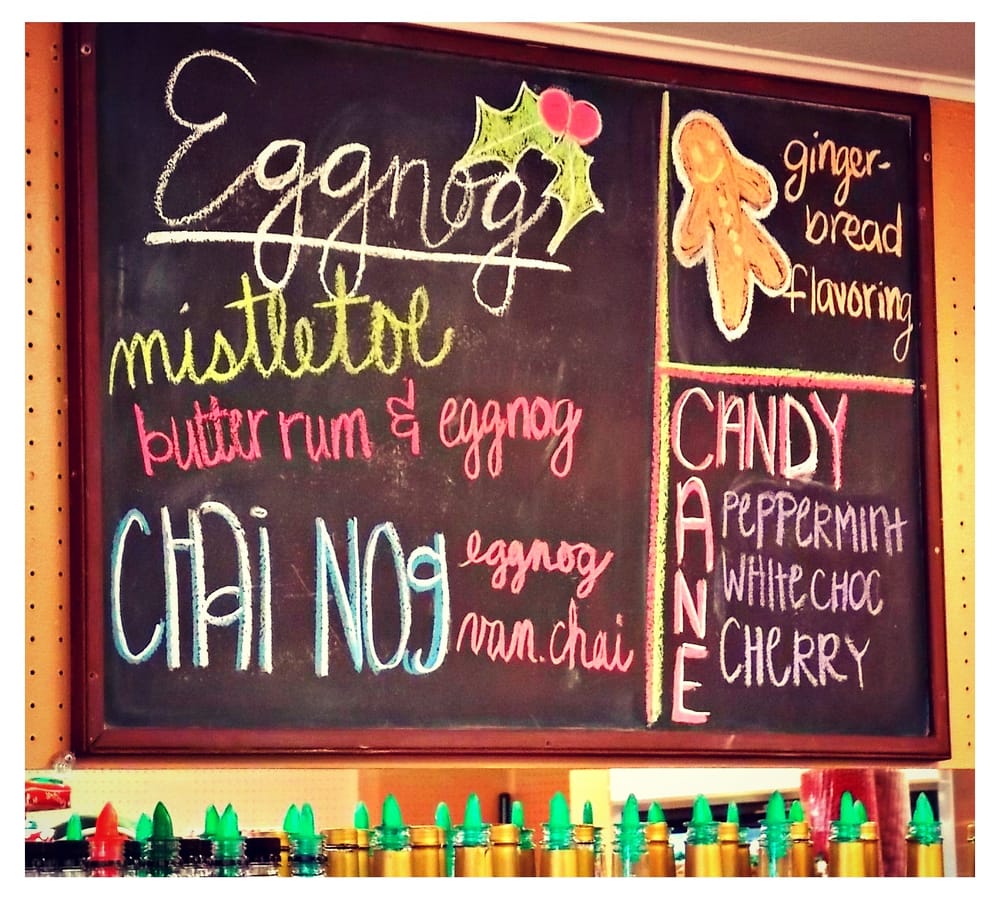 Eggnog
mistletoe
butter rum & eggnog
CHai NOg
eggnog
van. chai
ginger-
bread
flavoring
CANDY
CANE
PEPPERMINT
WHITE CHOC
CHERRY